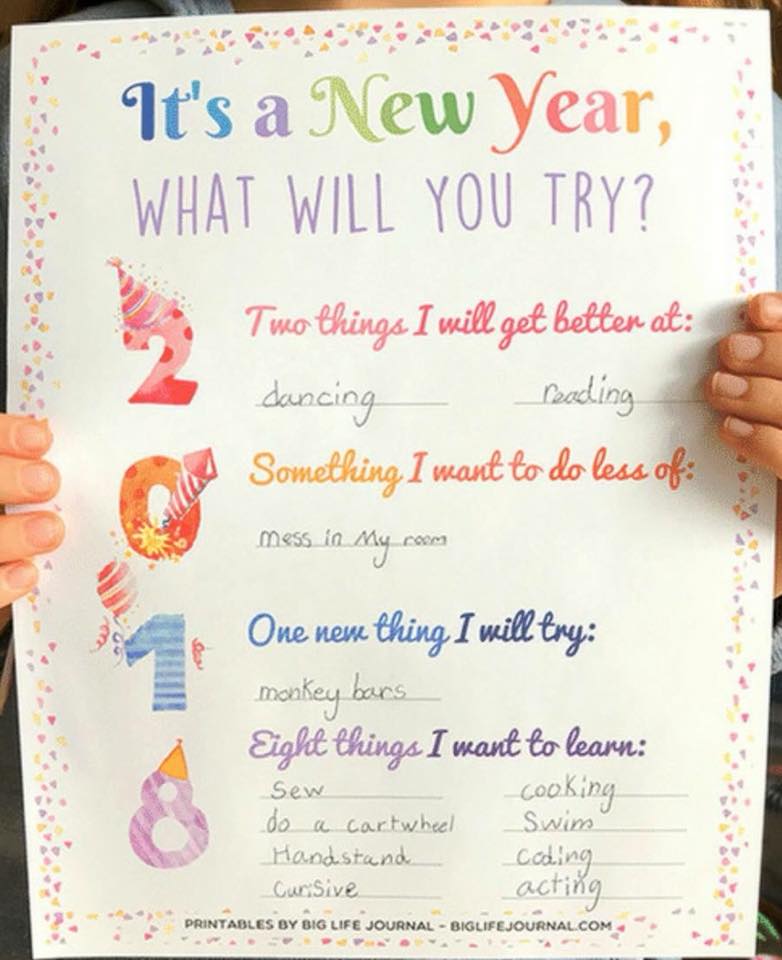 It's a New Year,
WHAT WILL YOU TRY?
2
Two things I will get better at:
dancing reading
0
Something I want to do less of:
mess in My room
1
One new thing I will try:
monkey bars
8
Eight things I want to learn:
Sew cooking
do a cartwheel Swim
Handstand Coding
CurSive acting
PRINTABLES BY BIG LIFE JOURNAL - BIGLIFEJOURNAL.COM